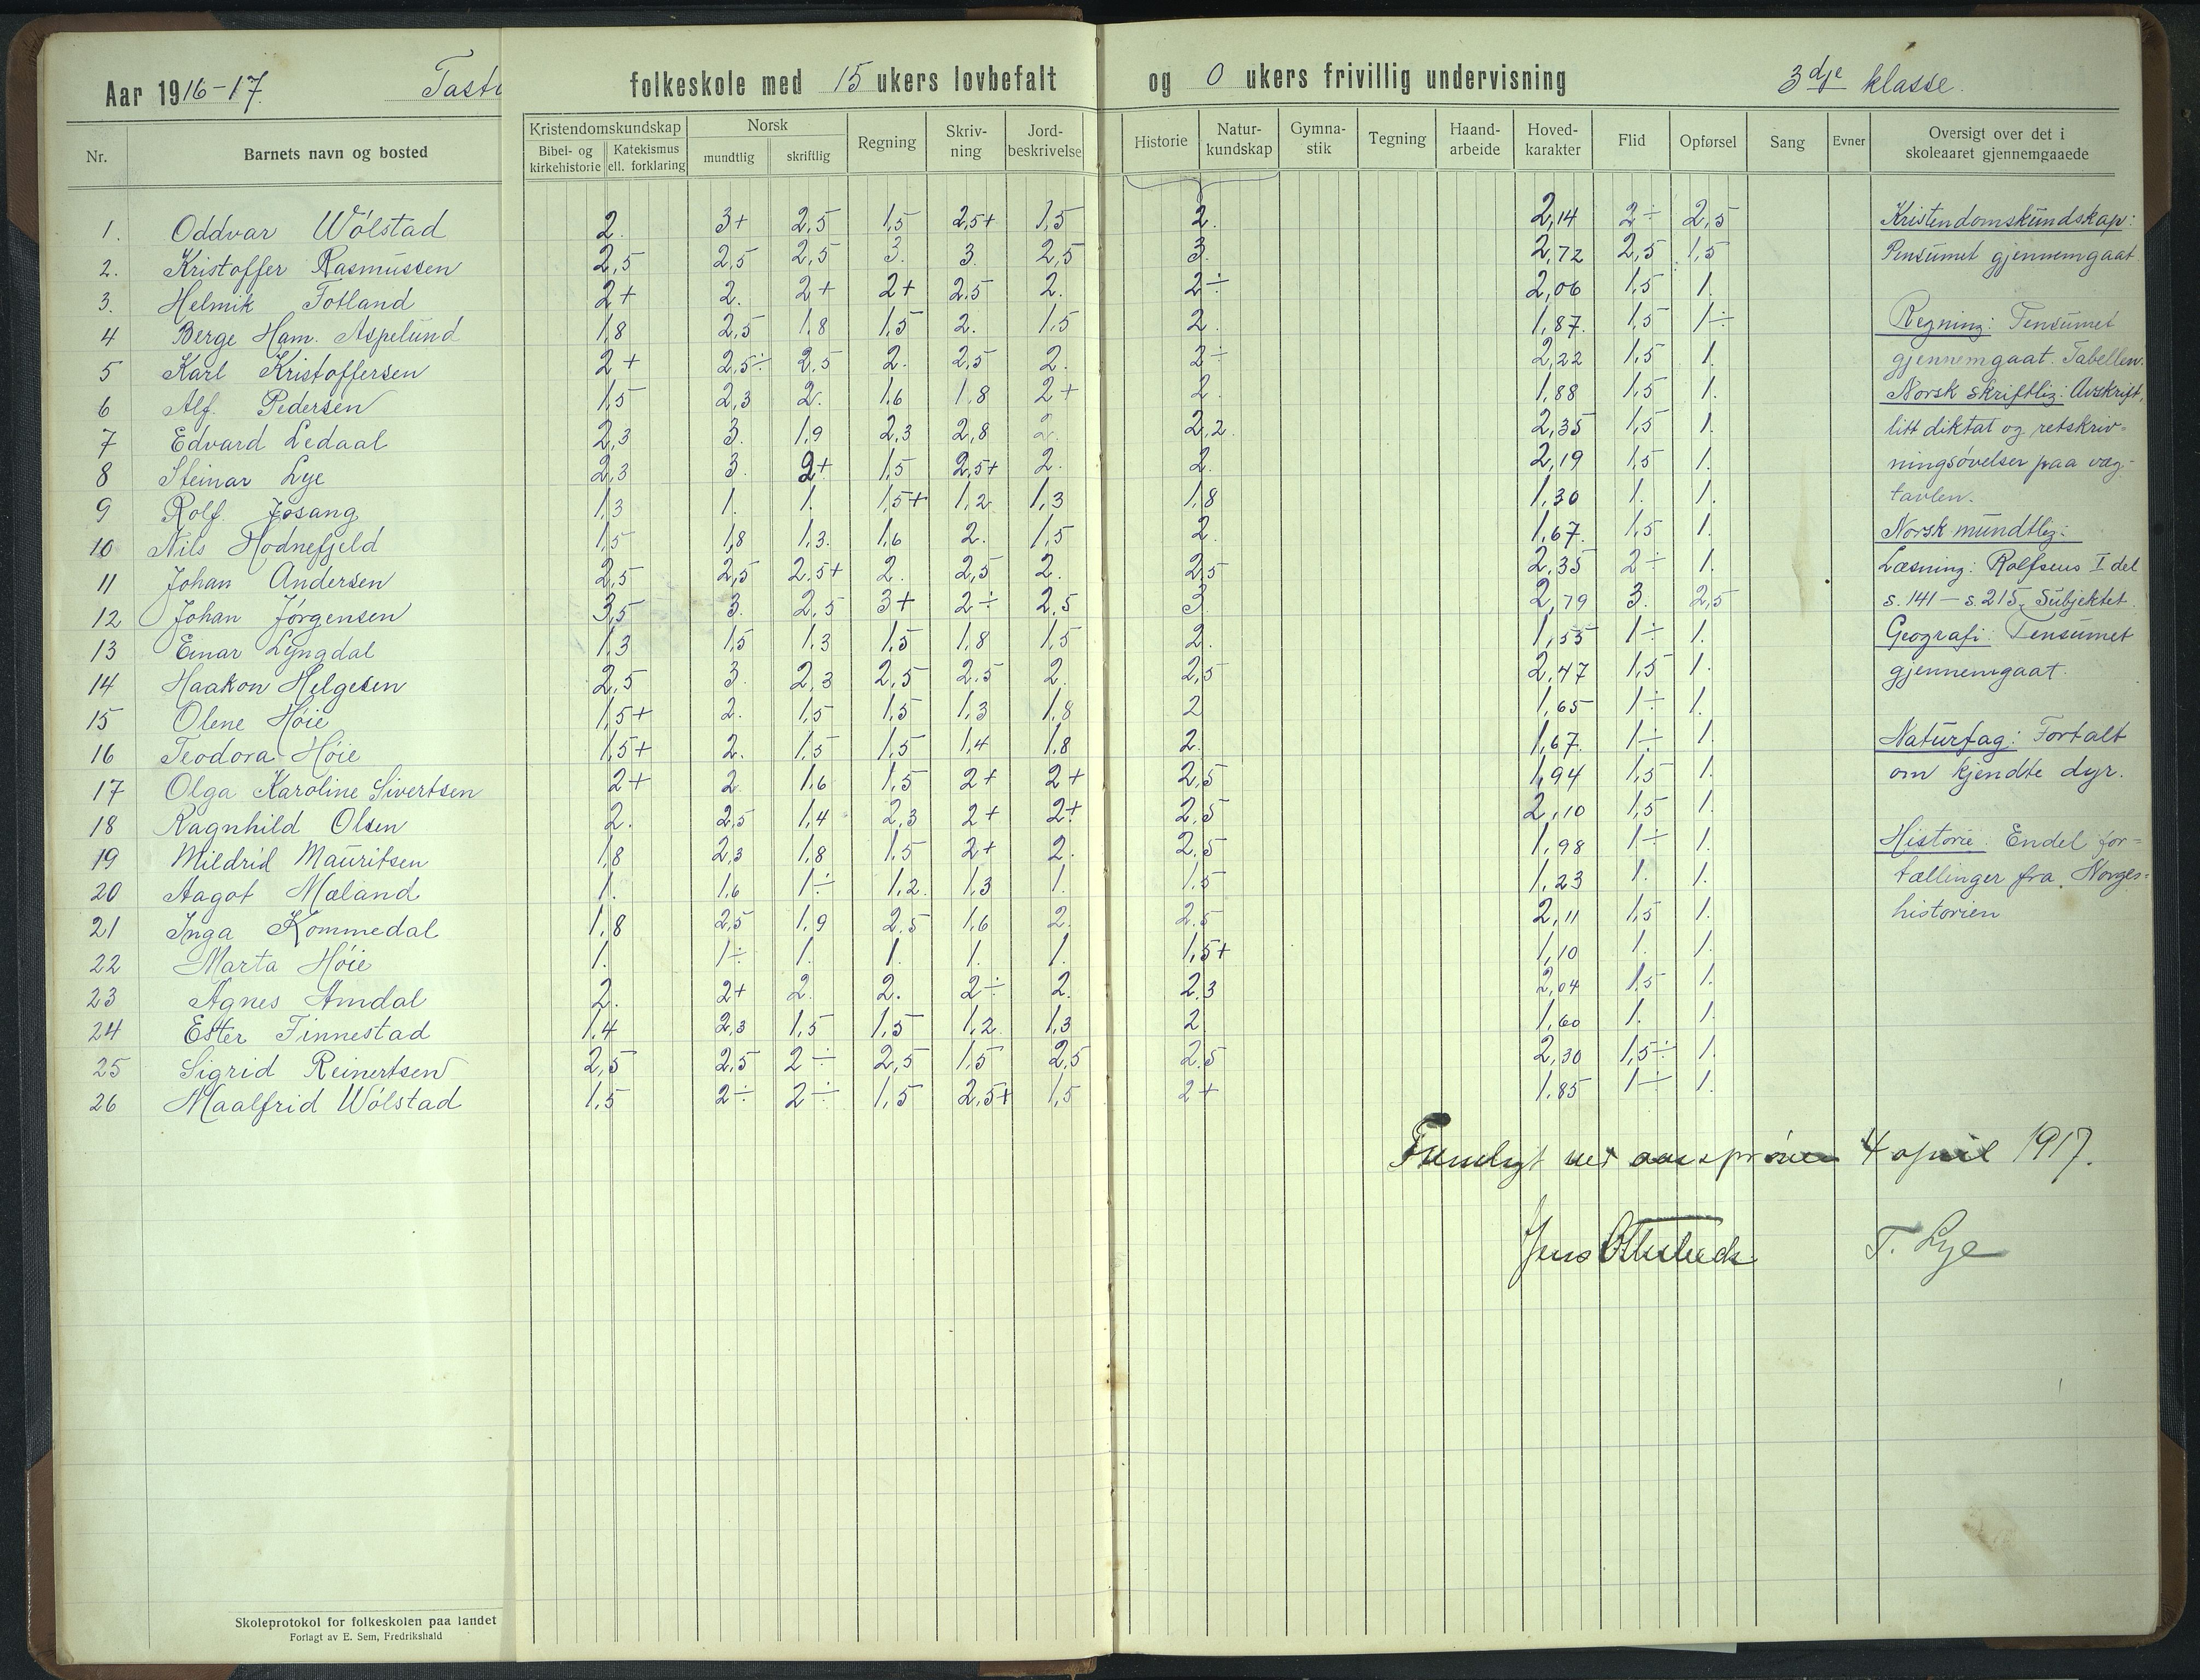 Aar 1916-17. Tast folkeskole med 15 ukers lovbefalt og 0 ukers frivillig undervisning 3dje klasse.
Nr. Barnets navn og bosted Kristendomskundskap Bibel- og kirkehistorie Katekismus ell. forklaring Norsk mundtlig skriftlig Regning Skriv-ning Jord-beskrivelse Historie Natur-kundskap Gymna-stik Tegning Haand-arbeide Hoved-karakter Flid Opførsel Sang Evner Oversigt over det i skoleaaret gjennemgaaede
1. Oddvar Wølstad 2. 3+ 2,5 1,5 2,5+ 1,5 2. 2,14 2÷ 2,5 Kristendomskundskap:
2. Kristoffer Rasmussen 2,5 2,5 2,5 3. 3. 2,5 3. 2,72 2,5 1,5 Pensumet gjennemgaat
3. Helmik Fotland 2+ 2. 2+ 2+ 2,5 2. 2÷ 2,06 1,5 1.
4 Berge Ham. Aspelund 1,8 2,5 1,8 1,5 2. 1,5 2. 1,87. 1,5 1÷ Regning: Pensumet
5 Karl Kristoffersen 2+ 2,5÷ 2,5 2. 2,5 2. 2÷ 2,22 1,5 1. gjennemgaat. Tabellen.
6 Alf. Pedersen 1,5 2,3 2. 1,6 1,8 2+ 2. 1,88 1,5 1. Norsk skriftlig: Avskrift,
7 Edvard Ledaal 2,3 3. 1,9 2,3 2,8 2. 2,2. 2,35 1,5 1. litt diktat og retskriv-
8 Steinar Lye 2,3 3. 2+ 1,5 2,5+ 2. 2. 2,19 1,5 1. ningsøvelser paa væg-
9 Rolf Jøsang 1,3 1. 1. 1,5+ 1,2 1,3 1,8 1,30 1. 1. tavlen.
10 Nils Hodnefjeld 1,5 1,8 1,3. 1,6 2. 1,5 2. 1,67. 1,5 1. Norsk mundtlig:
11 Johan Andersen 2,5 2,5 2,5+ 2. 2,5 2. 2,5 2,35 2÷ 1. Læsning: Rolfsens I del
12 Johan Jørgensen 3,5 3. 2,5 3+ 2÷ 2,5 3. 2,79 3. 2,5 s. 141 — s. 215. Subjektet.
13 Einar Lyngdal 1,3 1,5 1,3 1,5 1,8 1,5 2. 1,55 1÷ 1. Geografi: Pensumet
14 Haakon Helgesen 2,5 3. 2,3 2,5 2,5 2. 2,5 2,47 1,5 1. gjennemgaat.
15 Olene Høie 1,5+ 2. 1,5 1,5 1,3 1,8 2 1,65 1÷ 1.
16 Teodora Høie 1,5+ 2. 1,5 1,5 1,4 1,8 2. 1,67. 1÷ 1. Naturfag: Fortalt
17 Olga Karoline Sivertsen 2+ 2 1,6 1,5 2+ 2+ 2,5 1,94 1,5 1. om kjendte dyr.
18 Ragnhild Olsen 2. 2,5 1,4 2,3 2+ 2+ 2,5 2,10 1,5 1.
19 Mildrid Mauritsen 1,8 2,3 1,8 1,5 2+ 2. 2,5 1,98 1÷ 1. Historie. Endel for-
20 Aagot Mæland 1. 1,6 1÷ 1,2. 1,3 1. 1,5 1,23 1. 1. tællinger fra Norges-
21 Inga Kommedal 1,8 2,5 1,9 2,5 1,6 2. 2,5 2,11 1,5 1. historien
22 Marta Høie 1. 1÷ 1. 1. 1. 1. 1,5+ 1,10 1. 1.
23 Agnes Amdal 2. 2+ 2. 2. 2÷ 2. 2,3 2,04 1,5 1.
24 Ester Finnestad 1,4 2,3 1,5 1,5 1,2 1,3 2 1,60 1. 1.
25 Sigrid Reinertsen 2,5 2,5 2÷ 2,5 1,5 2,5 2,5 2,30 1,5÷ 1.
26 Maalfrid Wølstad 1,5 2÷ 2÷ 1,5 2,5+ 1,5 2+ 1,85 1÷ 1.
Fremlagt ved aarsprøven 4 april 1917.
Jens T. Lye
Skoleprotokol for folkeskolen paa landet
Forlagt av E. Sem, Fredrikshald